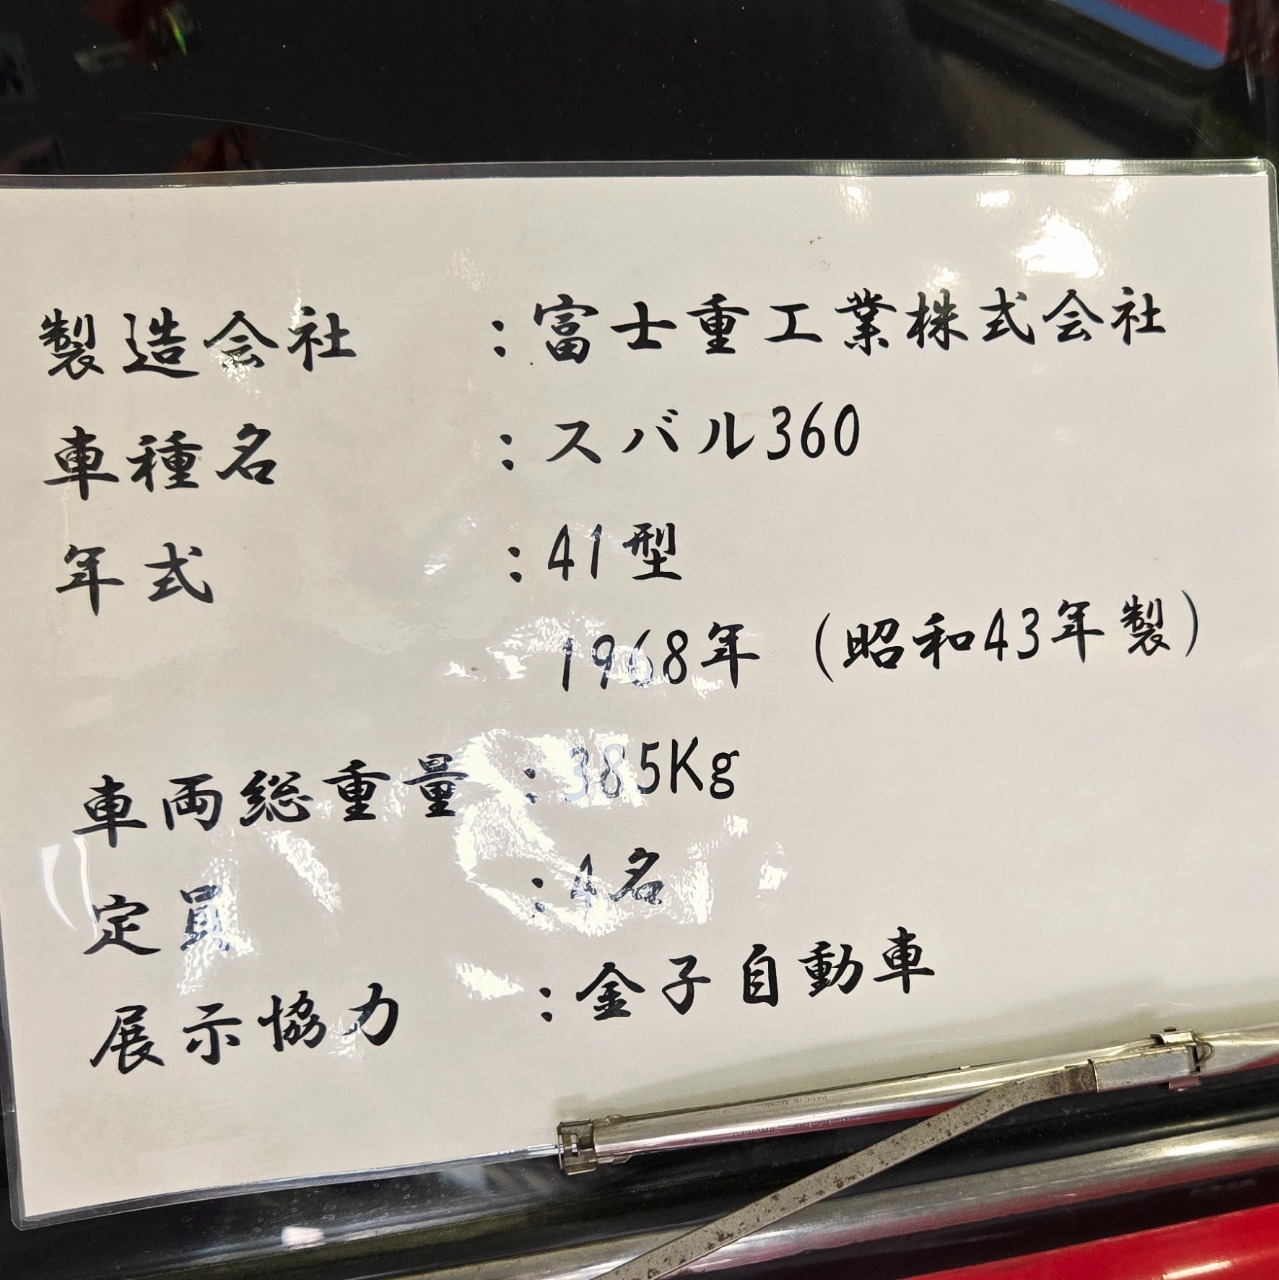 製造会社 :富士重工業株式会社
車種名 :スバル360
年式 :41型
1968年 (昭和43年製)
車両総重量 :385Kg
定員 :4名
展示協力 :金子自動車